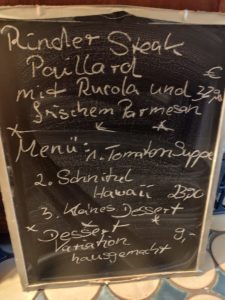 Rinder Steak
Paillard €
mit Rucola und
frischem Parmesan
Menü: 1. Tomaten Suppe
2. Schnitzel
Hawaii
3. kleines Dessert
Dessert
Variation 9,-
hausgemacht